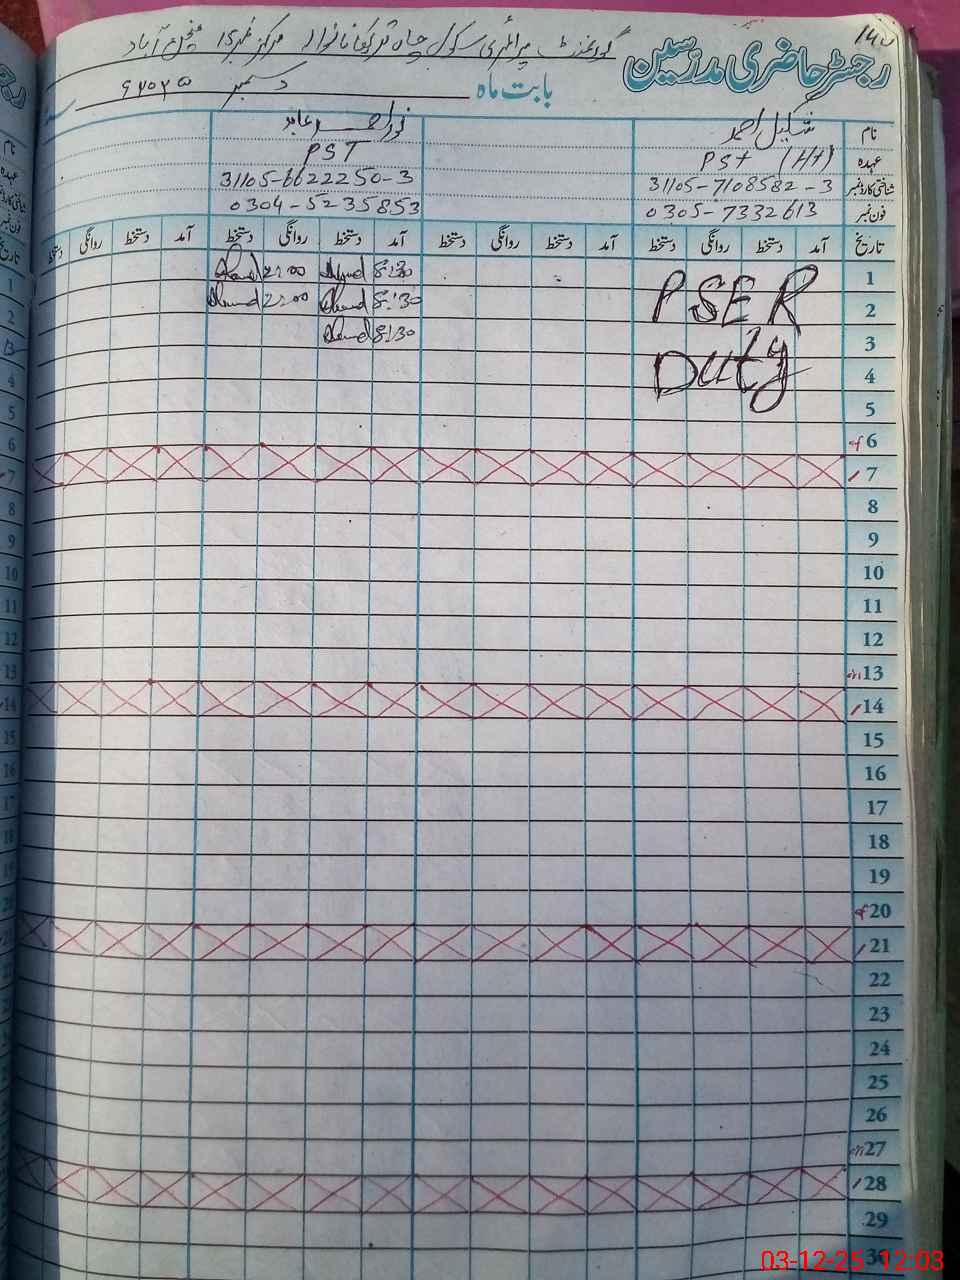 140
رجسٹر حاضری مدرسین
گورنمنٹ پرائمری سکول چاہ ترکھانانوالہ مرکز نمبری
بابت ماہ دسمبر ۲۰۲۵ء
نام شکیل احمد
عہدہ PST (Ht) PST
شناختی کارڈ نمبر 31105-7108582-3 31105-6622250-3
فون نمبر 0305-7332613 0304-5235853
تاریخ آمد دستخط روانگی دستخط آمد دستخط روانگی دستخط آمد دستخط روانگی دستخط آمد دستخط روانگی دستخط
1 PSER 8:30 2:00
2 8:30 2:00
3 Duty 8:30
4
5
6
7
8
9
10
11
12
13
14
15
16
17
18
19
20
21
22
23
24
25
26
27
28
29
30
03-12-25 12:03